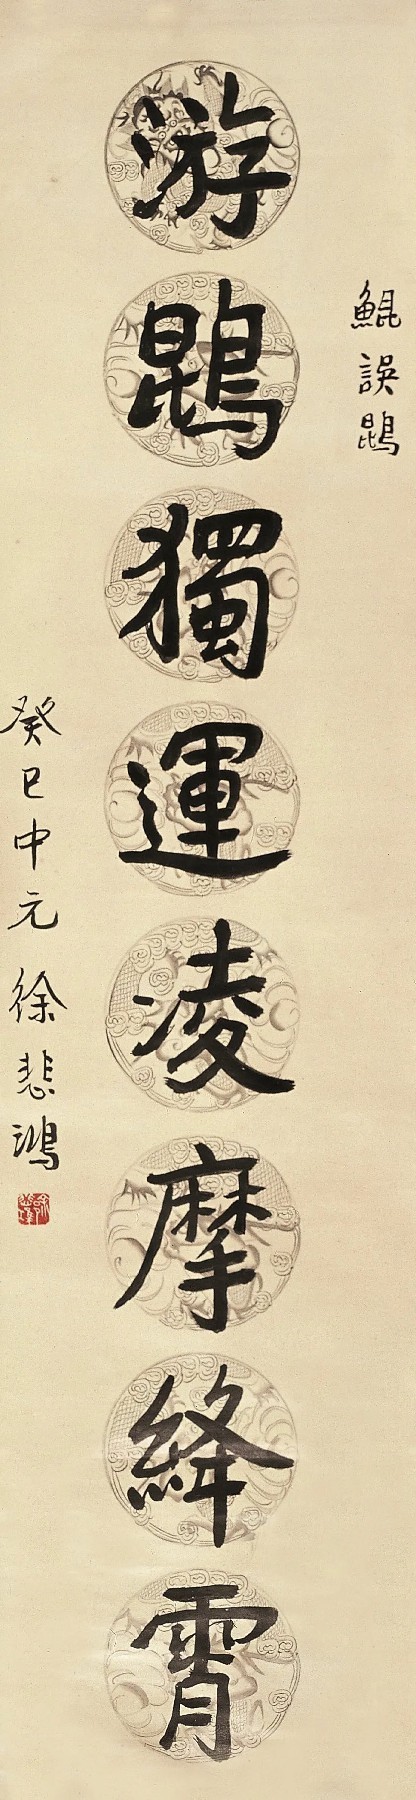 鯤誤鵾
游鵾獨運凌摩絳霄
癸巳中元徐悲鴻